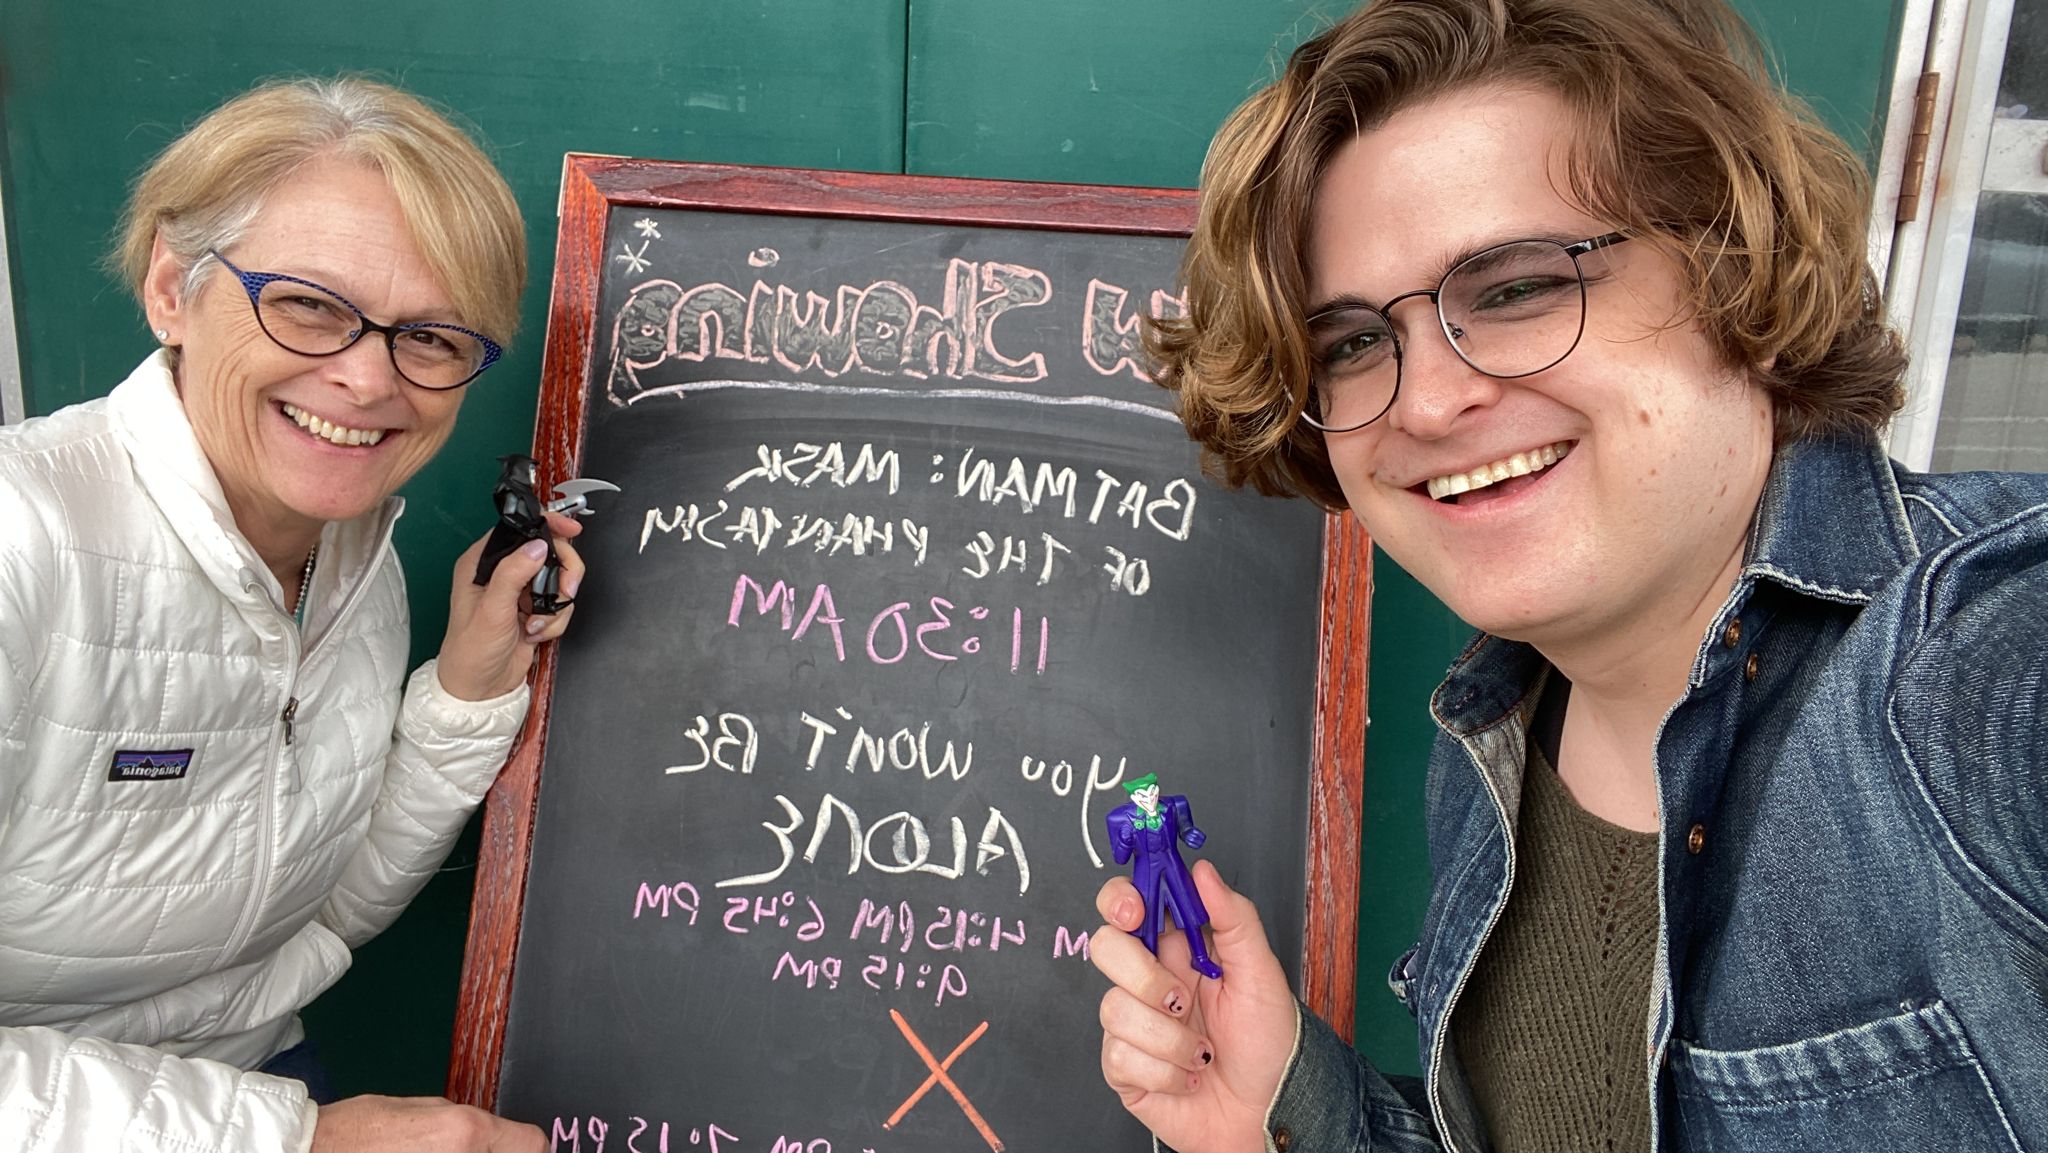 w Showing
BATMAN: MASK
OF THE PHANTASM
11:30 AM
you WON'T BE
ALONE
M 4:15 PM 6:45 PM
9:15 PM
PM 7:15 PM
patagonia